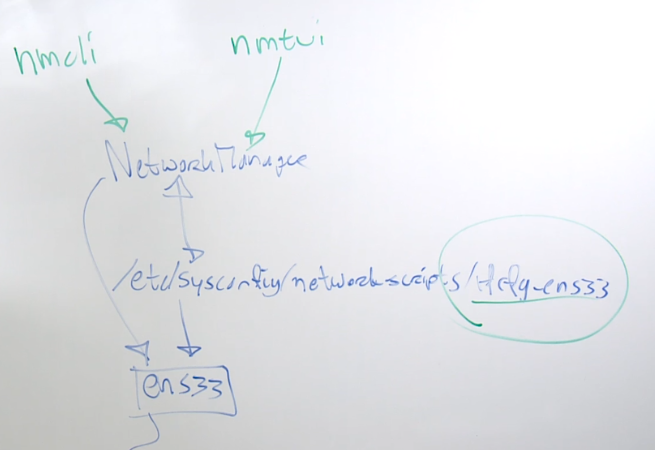 nmcli nmtui
NetworkManager
/etc/sysconfig/network-scripts/ifcfg-ens33
ens33